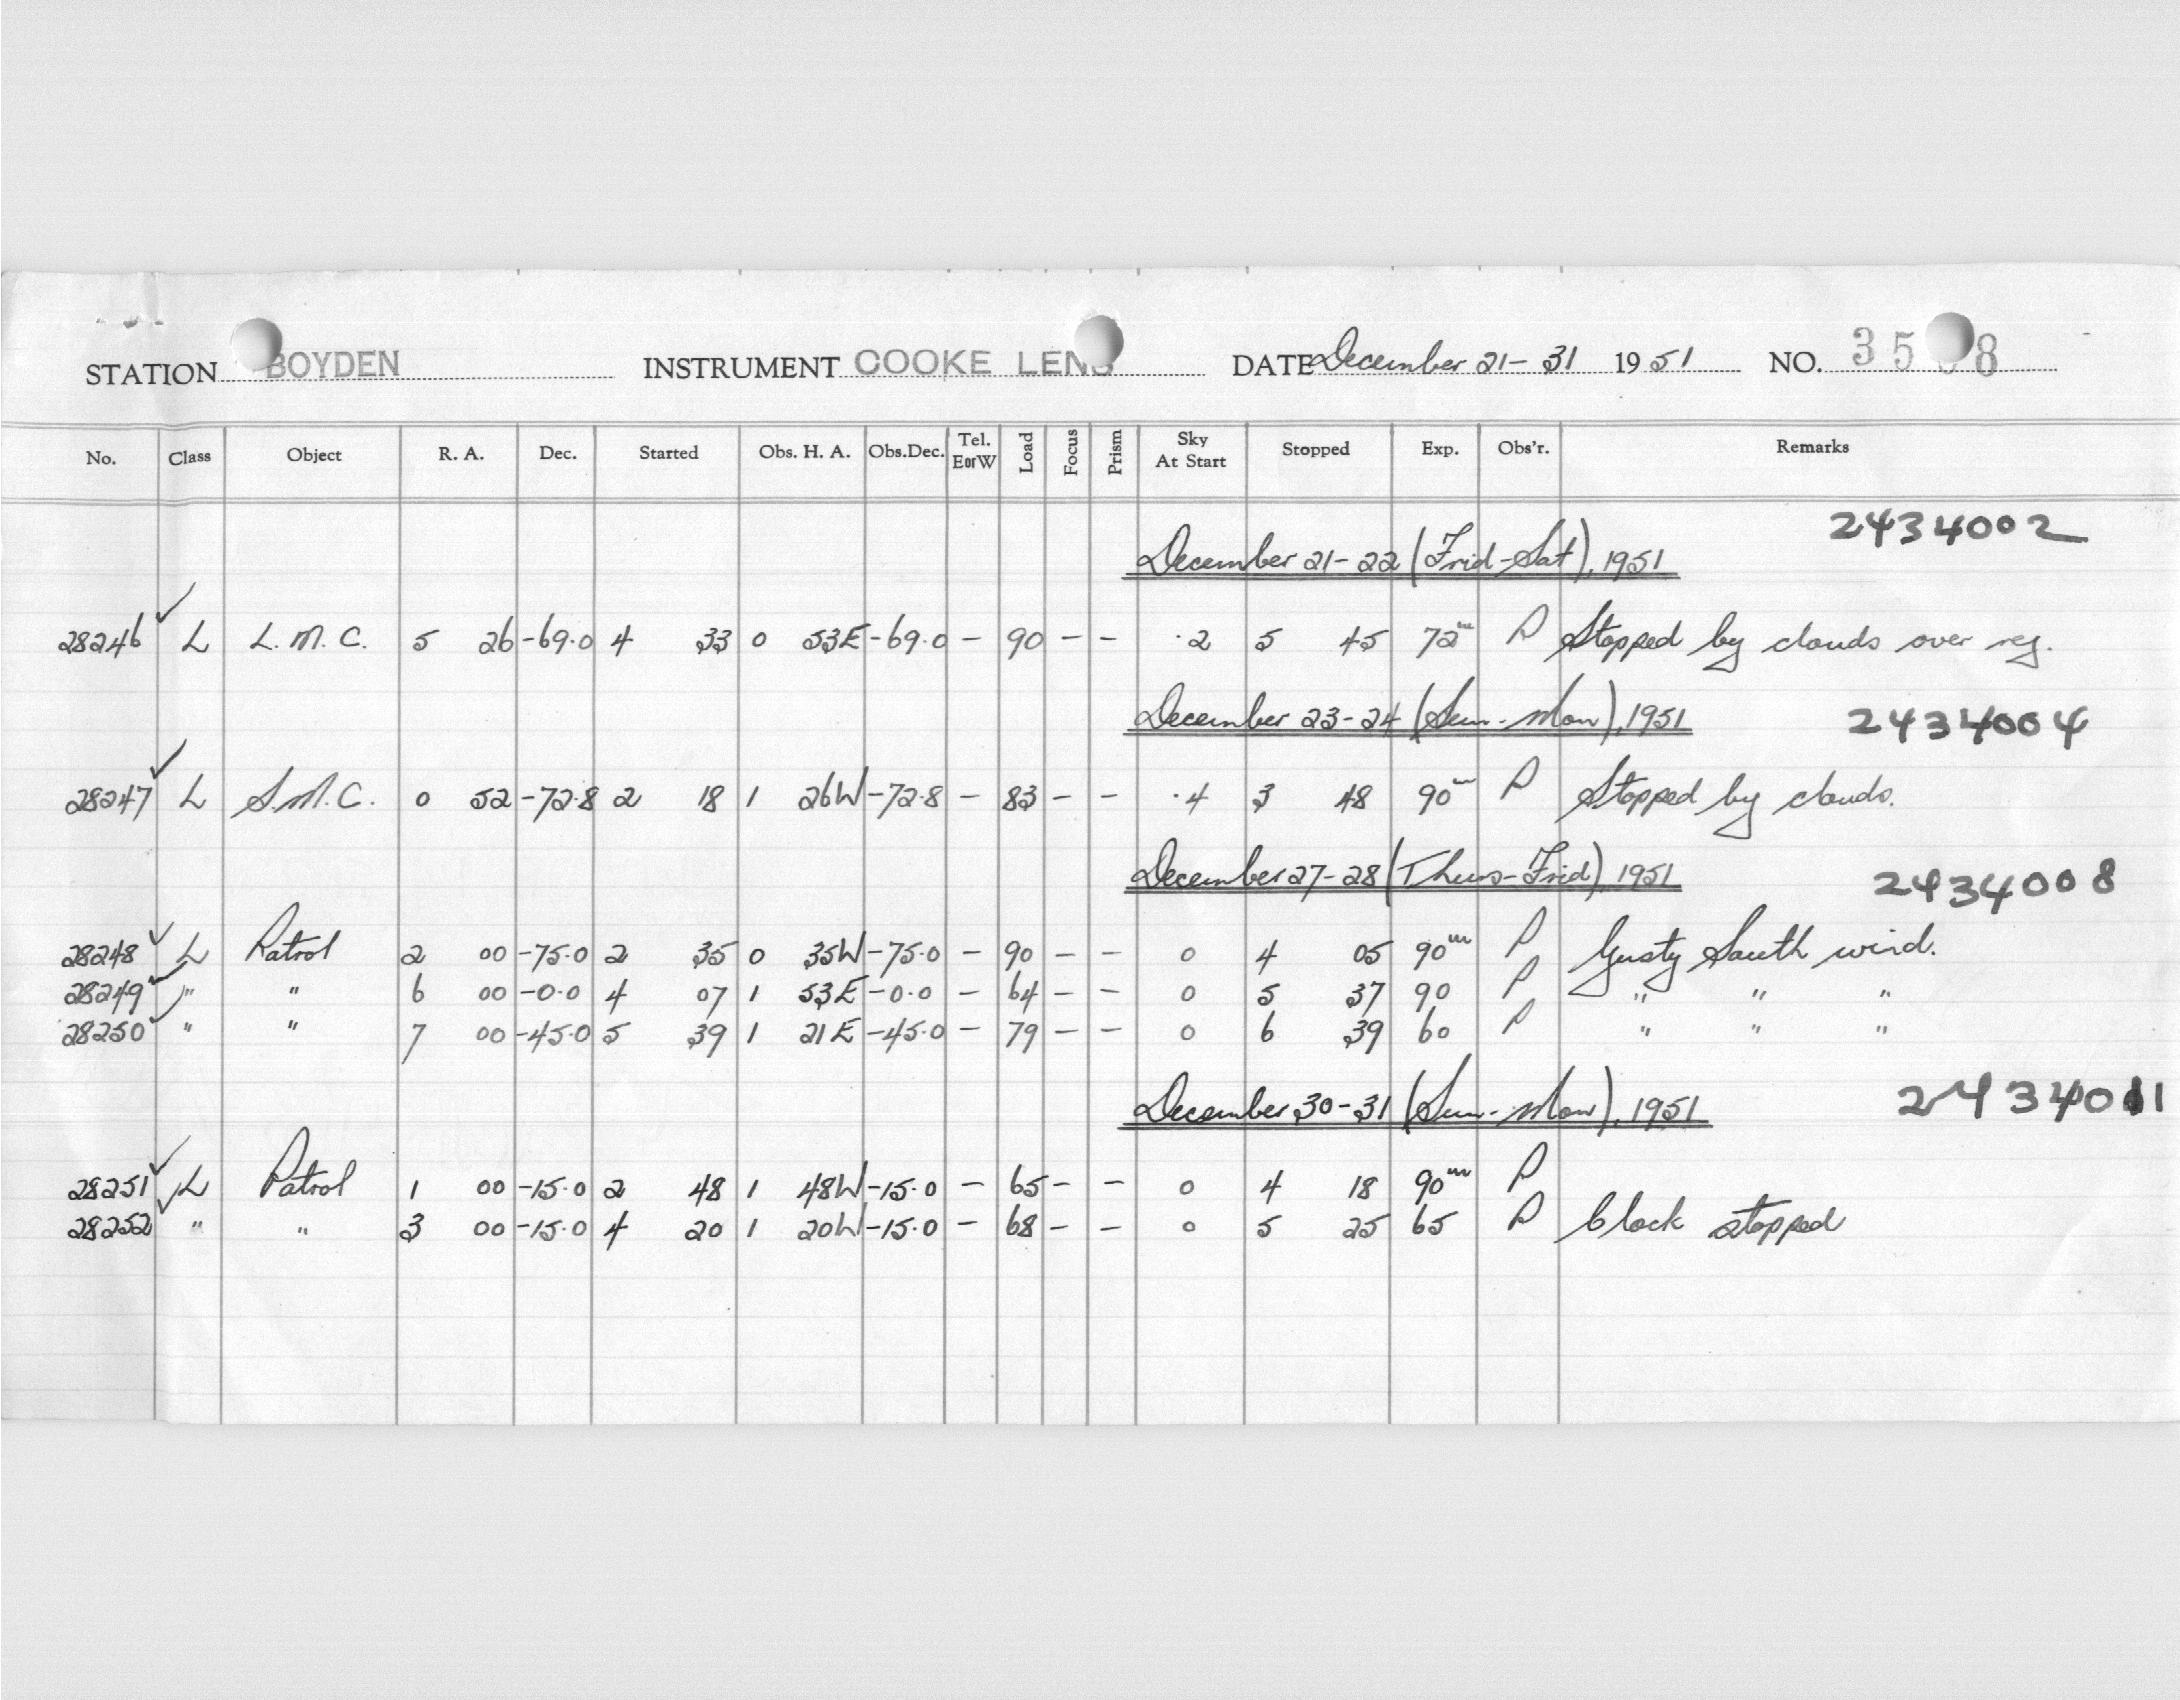 STATION BOYDEN INSTRUMENT COOKE LENS DATE December 21-31 1951 NO. 35 8
No. Class Object R. A. Dec. Started Obs. H. A. Obs.Dec. Tel. EorW Load Focus Prism Sky At Start Stopped Exp. Obs'r. Remarks
2434002
December 21-22 (Frid-Sat), 1951
28246 ✓ L L.M.C. 5 26 -69.0 4 33 0 53E -69.0 - 90 - - .2 5 45 72m P Stopped by clouds over reg.
December 23-24 (Sun-Mon), 1951 2434004
28247 ✓ L S.M.C. 0 52 -72.8 2 18 1 26W -72.8 - 83 - - .4 3 48 90m P Stopped by clouds.
December 27-28 (Thurs-Frid), 1951 2434008
28248 ✓ L Patrol 2 00 -75.0 2 35 0 35W -75.0 - 90 - - 0 4 05 90m P Gusty South wind.
28249 ✓ " " 6 00 -0.0 4 07 1 53E -0.0 - 64 - - 0 5 37 90 P " " "
28250 ✓ " " 7 00 -45.0 5 39 1 21E -45.0 - 79 - - 0 6 39 60 P " " "
December 30-31 (Sun-Mon), 1951 2434011
28251 ✓ L Patrol 1 00 -15.0 2 48 1 48W -15.0 - 65 - - 0 4 18 90m P
28252 ✓ " " 3 00 -15.0 4 20 1 20W -15.0 - 68 - - 0 5 25 65 P Clock stopped